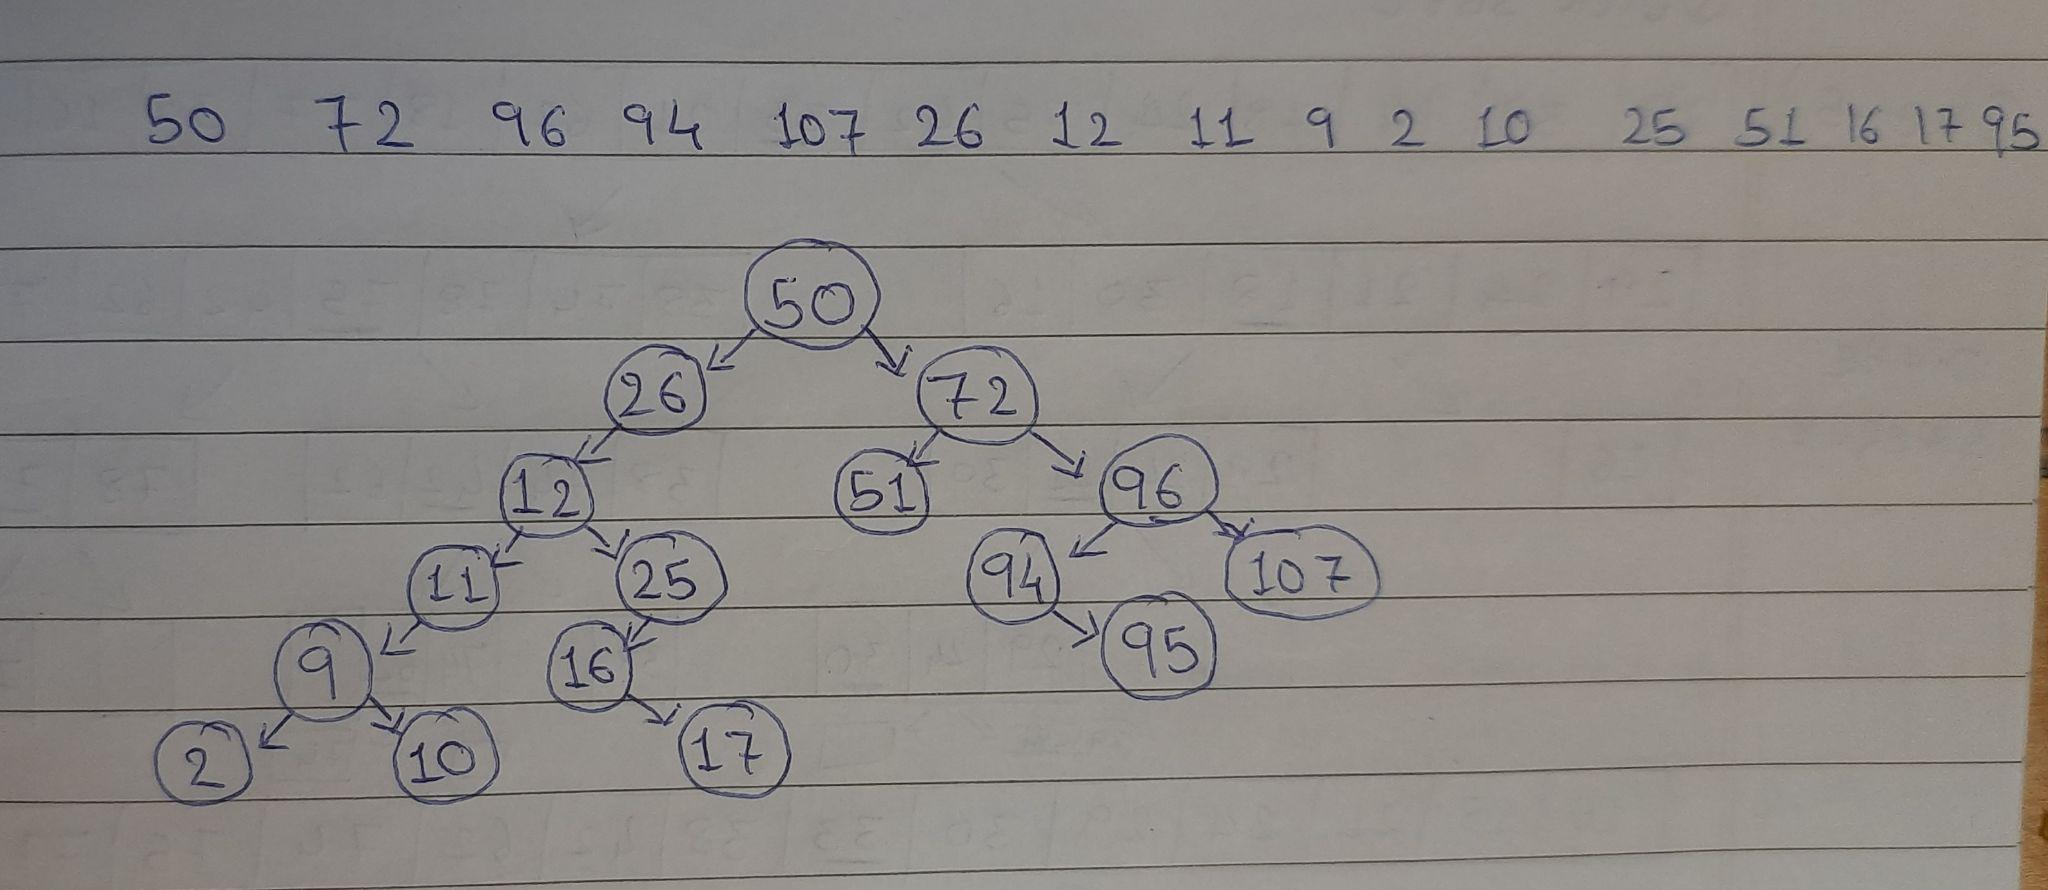 50 72 96 94 107 26 12 11 9 2 10 25 51 16 17 95
50
26 72
12 51 96
11 25 94 107
9 16 95
2 10 17